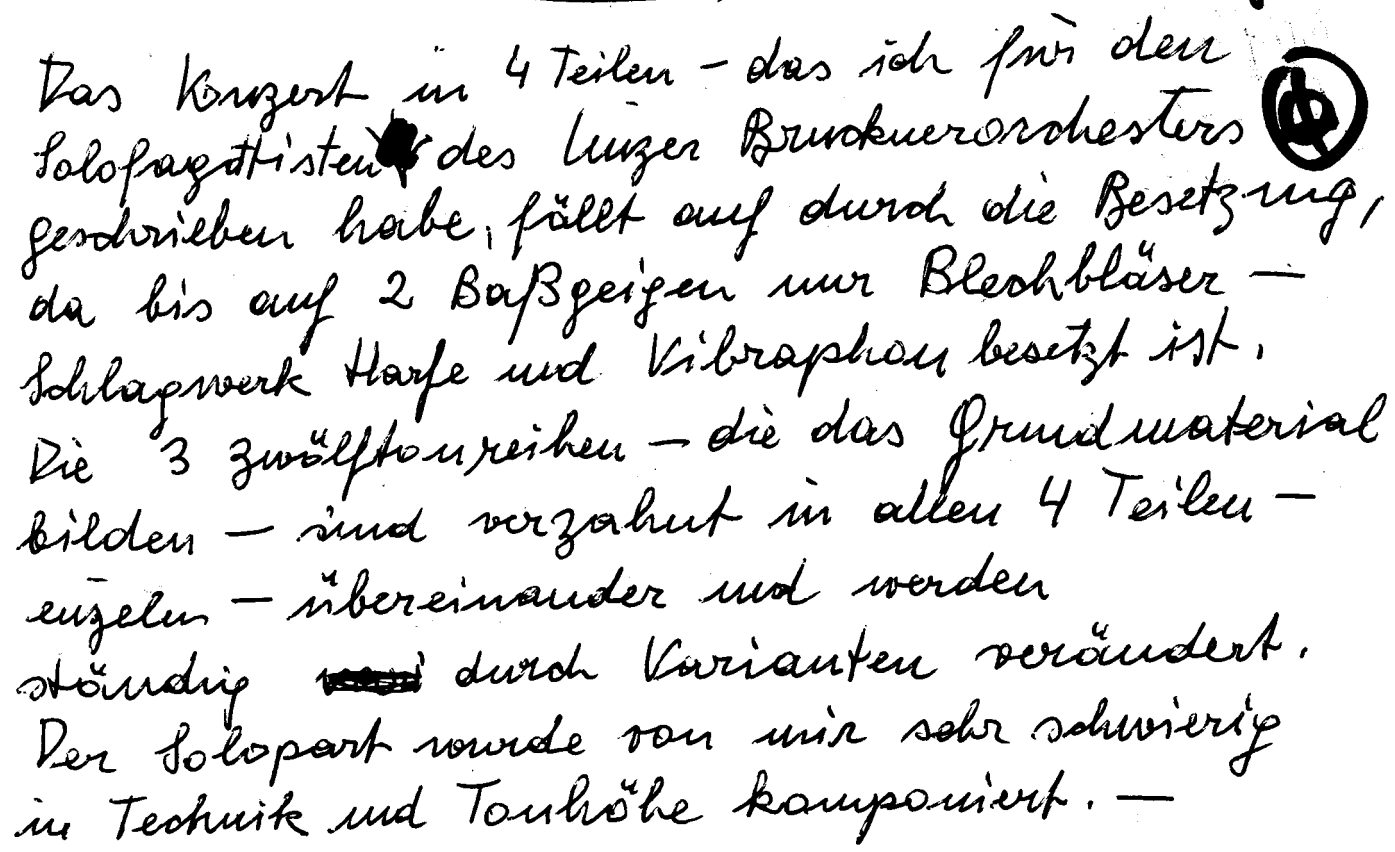 Das Konzert in 4 Teilen – das ich für den
Solofagottisten des Linzer Brucknerorchesters
geschrieben habe, fällt auf durch die Besetzung,
da bis auf 2 Baßgeigen nur Blechbläser –
Schlagwerk Harfe und Vibraphon besetzt ist.
Die 3 Zwölftonreihen – die das Grundmaterial
bilden – sind verzahnt in allen 4 Teilen –
einzeln – übereinander und werden
ständig durch Varianten verändert.
Der Solopart wurde von mir sehr schwierig
in Technik und Tonhöhe komponiert. —